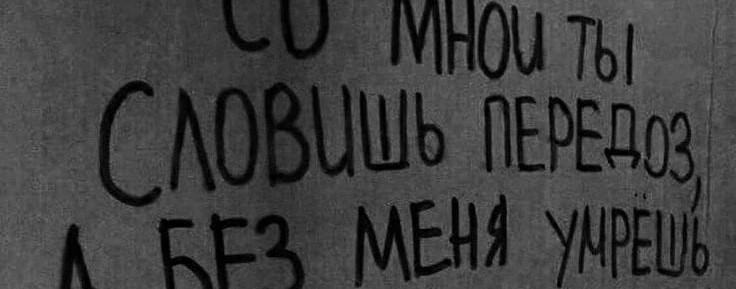 СО МНОЙ ТЫ
СЛОВИШЬ ПЕРЕДОЗ,
А БЕЗ МЕНЯ УМРЁШЬ